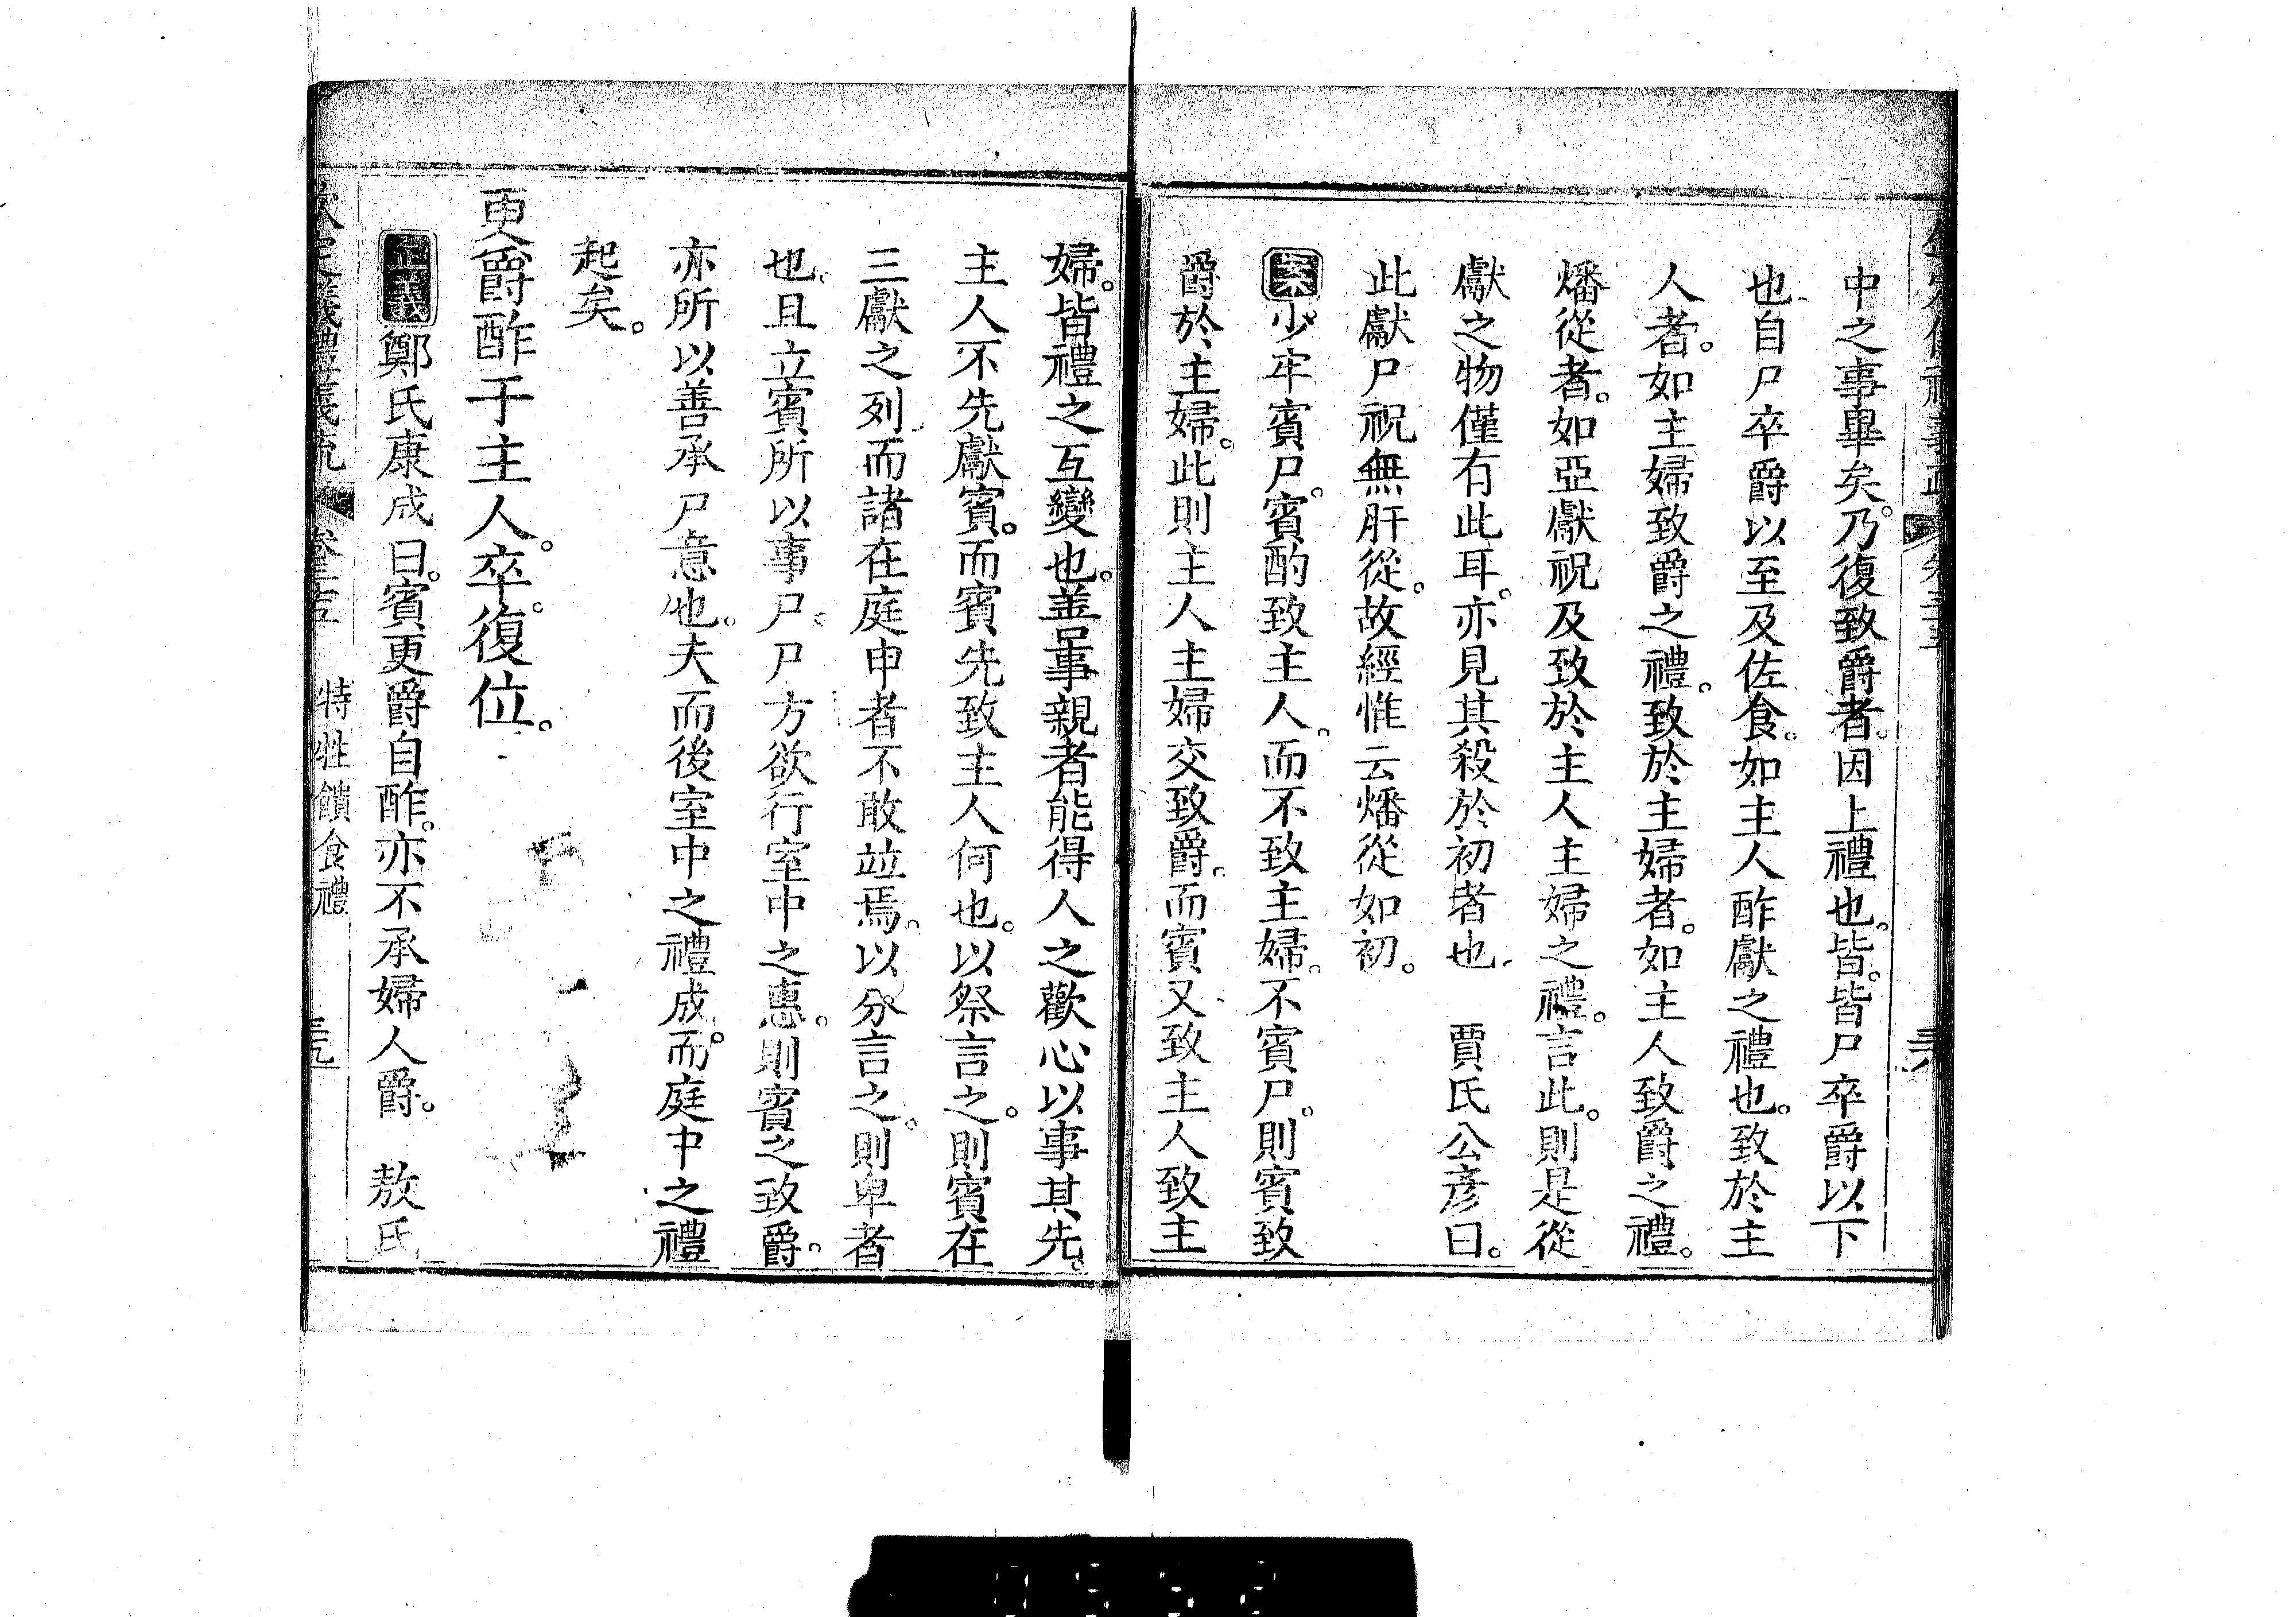 中之事畢矣。乃復致爵者。因上禮也。皆。皆尸卒爵以下
也。自尸卒爵以至及佐食。如主人酢獻之禮也。致於主
人者。如主婦致爵之禮。致於主婦者。如主人致爵之禮。
燔從者。如亞獻祝及致於主人主婦之禮。言此。則是從
獻之物僅有此耳。亦見其殺於初者也 賈氏公彥曰。
此獻尸祝無肝從。故經惟云燔從如初。
案少牢賓尸。賓酌致主人。而不致主婦。不賓尸。則賓致
爵於主婦。此則主人主婦交致爵。而賓又致主人致主
婦。皆禮之互變也。善事親者能得人之歡心以事其先。
主人不先獻賓。而賓先致主人何也。以祭言之。則賓在
三獻之列。而諸在庭中者不敢竝焉。以分言之。則卑者
也。且立賓所以事尸。尸方欲行室中之惠。則賓之致爵。
亦所以善承尸意也。夫而後室中之禮成。而庭中之禮
起矣。
更爵酢于主人。卒。復位。
正義鄭氏康成曰。賓更爵自酢。亦不承婦人爵。 敖氏
欽定儀禮義疏 卷三十五 特牲饋食禮